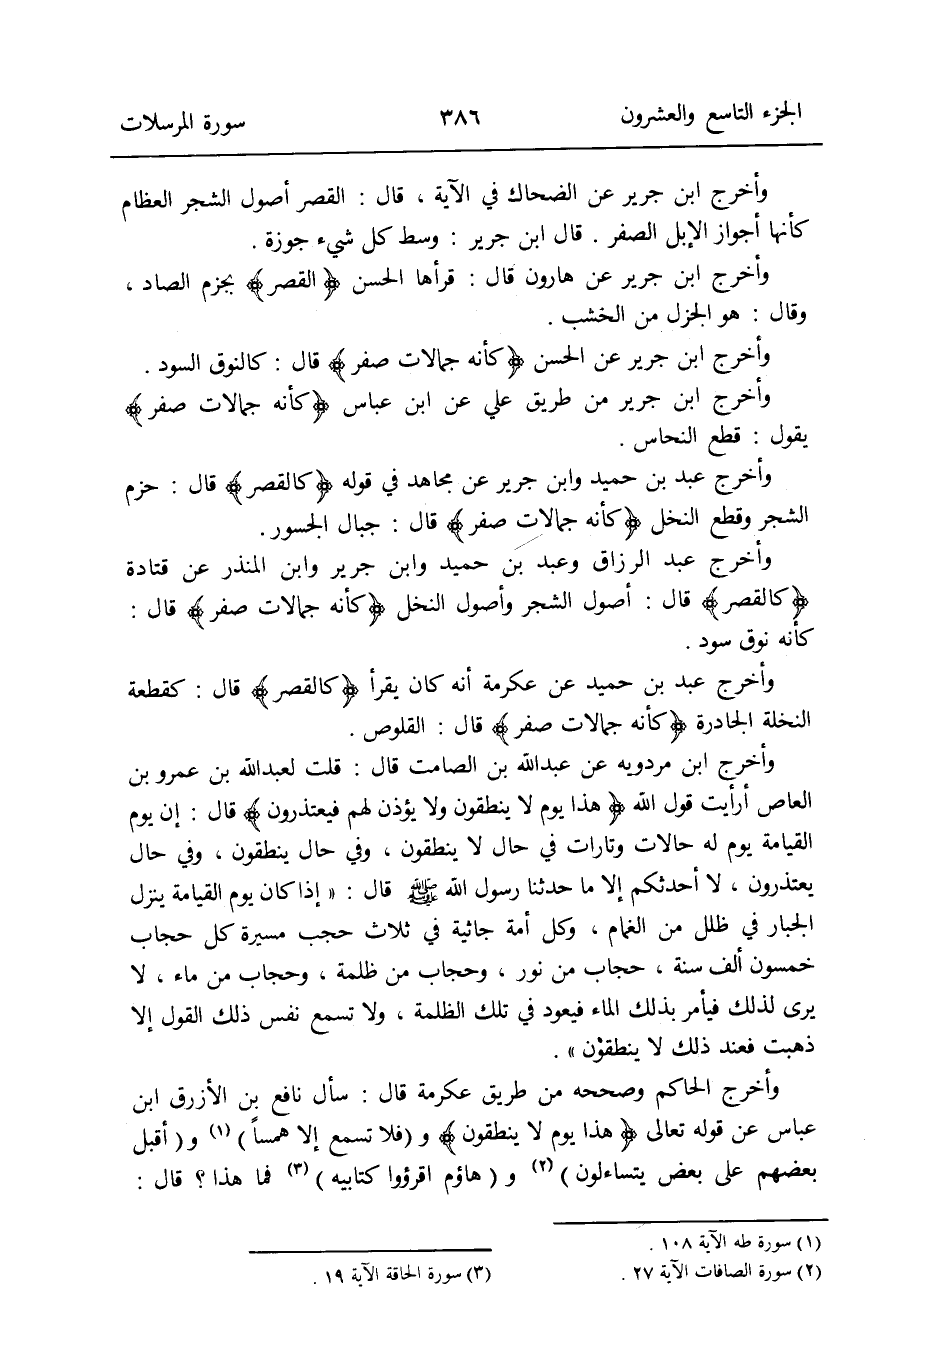 الجزء التاسع والعشرون ٣٨٦ سورة المرسلات
وأخرج ابن جرير عن الضحاك في الآية ، قال : القصر أصول الشجر العظام
كأنها أجواز الإبل الصفر . قال ابن جرير : وسط كل شيء جوزة .
وأخرج ابن جرير عن هارون قال : قرأها الحسن ﴿ القصر ﴾ بجزم الصاد ،
وقال : هو الجزل من الخشب .
وأخرج ابن جرير عن الحسن ﴿ كأنه جمالات صفر ﴾ قال : كالنوق السود .
وأخرج ابن جرير من طريق علي عن ابن عباس ﴿ كأنه جمالات صفر ﴾
يقول : قطع النحاس .
وأخرج عبد بن حميد وابن جرير عن مجاهد في قوله ﴿ كالقصر ﴾ قال : حزم
الشجر وقطع النخل ﴿ كأنه جمالات صفر ﴾ قال : جبال الجسور .
وأخرج عبد الرزاق وعبد بن حميد وابن جرير وابن المنذر عن قتادة
﴿ كالقصر ﴾ قال : أصول الشجر وأصول النخل ﴿ كأنه جمالات صفر ﴾ قال :
كأنه نوق سود .
وأخرج عبد بن حميد عن عكرمة أنه كان يقرأ ﴿ كالقصر ﴾ قال : كقطعة
النخلة الجادرة ﴿ كأنه جمالات صفر ﴾ قال : القلوص .
وأخرج ابن مردويه عن عبدالله بن الصامت قال : قلت لعبدالله بن عمرو بن
العاص أرأيت قول الله ﴿ هذا يوم لا ينطقون ولا يؤذن لهم فيعتذرون ﴾ قال : إن يوم
القيامة يوم له حالات وتارات في حال لا ينطقون ، وفي حال ينطقون ، وفي حال
يعتذرون ، لا أحدثكم إلا ما حدثنا رسول الله ﷺ قال : « إذا كان يوم القيامة ينزل
الجبار في ظلل من الغمام ، وكل أمة جاثية في ثلاث حجب مسيرة كل حجاب
خمسون ألف سنة ، حجاب من نور ، وحجاب من ظلمة ، وحجاب من ماء ، لا
يرى لذلك فيأمر بذلك الماء فيعود في تلك الظلمة ، ولا تسمع نفس ذلك القول إلا
ذهبت فعند ذلك لا ينطقون » .
وأخرج الحاكم وصححه من طريق عكرمة قال : سأل نافع بن الأزرق ابن
عباس عن قوله تعالى ﴿ هذا يوم لا ينطقون ﴾ و (فلا تسمع إلا همساً ) (١) و ( أقبل
بعضهم على بعض يتساءلون ) (٢) و ( هاؤم اقرؤوا كتابيه ) (٣) فما هذا ؟ قال :
(١) سورة طه الآية ١٠٨ .
(٢) سورة الصافات الآية ٢٧ .
(٣) سورة الحاقة الآية ١٩ .